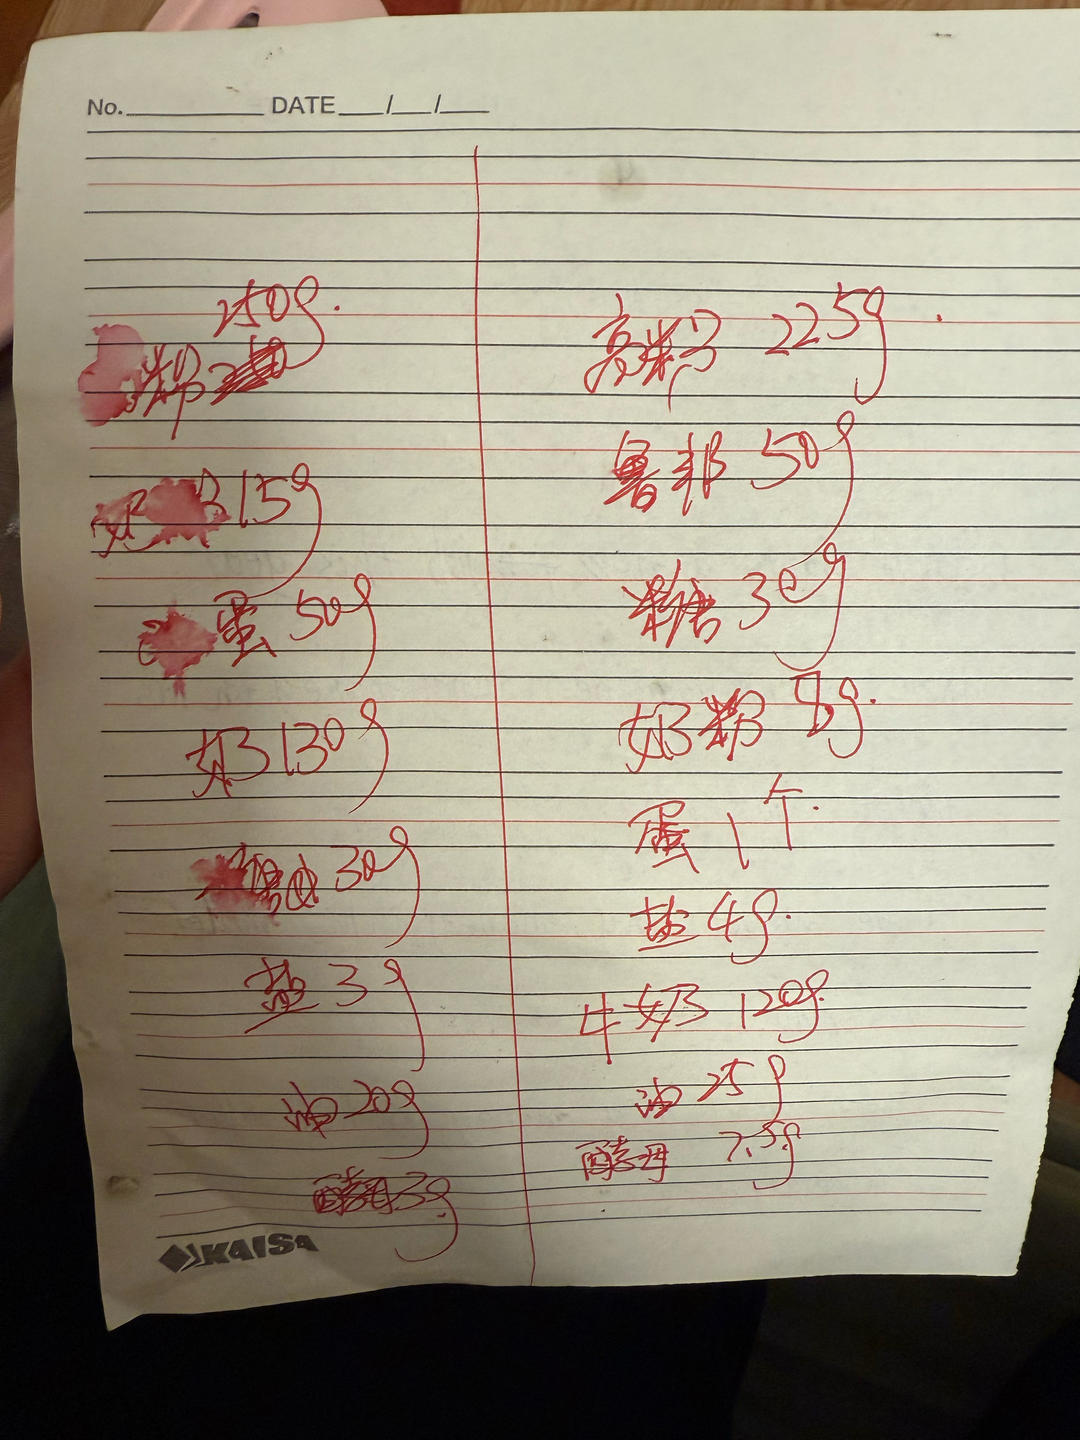 No. DATE / /
250g.
粉
奶 15g
蛋 50g
奶 130g
30g
盐 3g
油 20g
酵母 3g
高粉 225g.
鲁邦 50g
糖 30g
奶粉 8g.
蛋 1个.
盐 4g.
牛奶 120g.
油 25g
酵母 7.5g
KAISA